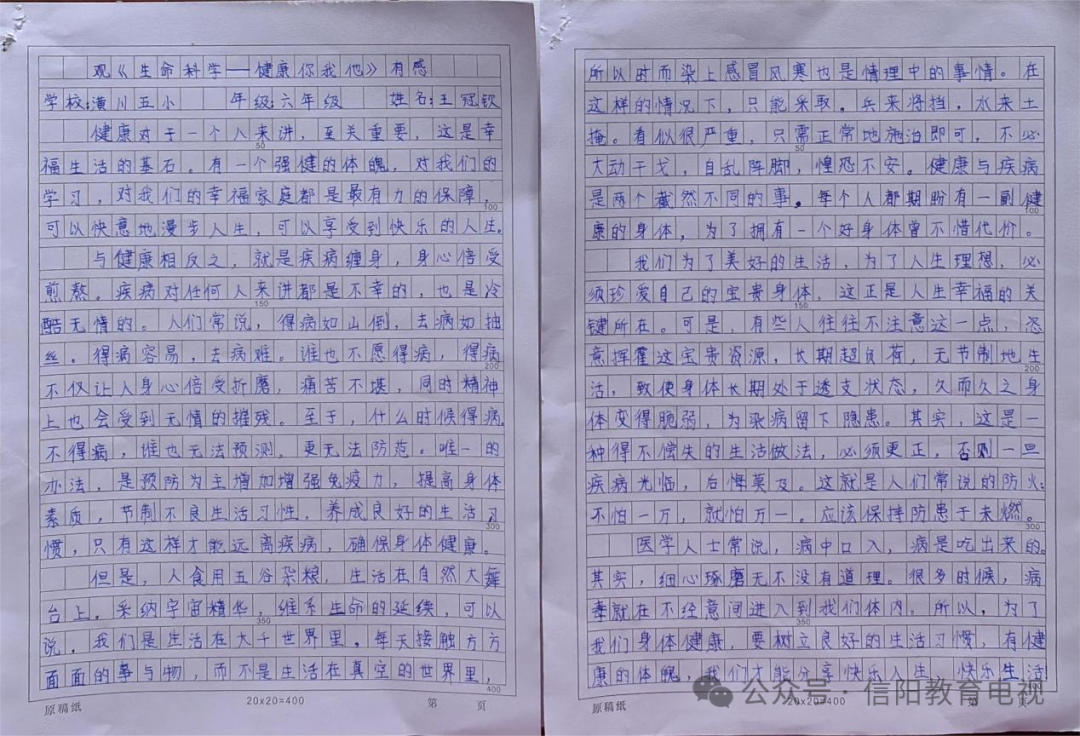 观《生命科学——健康你我他》有感
学校:潢川五小 年级:六年级 姓名:王冠钦
健康对于一个人来讲，至关重要，这是幸
福生活的基石。有一个强健的体魄，对我们的
学习，对我们的幸福家庭都是最有力的保障，
可以快意地漫步人生，可以享受到快乐的人生。
与健康相反之，就是疾病缠身，身心倍受
煎熬。疾病对任何人来讲都是不幸的，也是冷
酷无情的。人们常说，得病如山倒，去病如抽
丝。得病容易，去病难。谁也不愿得病，得病
不仅让人身心倍受折磨，痛苦不堪，同时精神
上也会受到无情的摧残。至于，什么时候得病，
不得病，谁也无法预测，更无法防范。唯一的
办法，是预防为主增加增强免疫力，提高身体
素质，节制不良生活习性，养成良好的生活习
惯，只有这样才能远离疾病，确保身体健康。
但是，人食用五谷杂粮，生活在自然大舞
台上，采纳宇宙精华，维系生命的延续，可以
说，我们是生活在大千世界里。每天接触方方
面面的事与物，而不是生活在真空的世界里，
原稿纸 20×20=400 第 页
所以时而染上感冒风寒也是情理中的事情。在
这样的情况下，只能采取。兵来将挡，水来土
掩。看似很严重，只需正常地施治即可，不必
大动干戈，自乱阵脚，惶恐不安。健康与疾病
是两个截然不同的事。每个人都期盼有一副健
康的身体，为了拥有一个好身体曾不惜代价。
我们为了美好的生活，为了人生理想，必
须珍爱自己的宝贵身体，这正是人生幸福的关
键所在。可是，有些人往往不注意这一点，恣
意挥霍这宝贵资源，长期超负荷，无节制地生
活，致使身体长期处于透支状态，久而久之身
体变得脆弱，为染病留下隐患。其实，这是一
种得不偿失的生活做法，必须更正，否则一旦
疾病光临，后悔莫及。这就是人们常说的防火：
不怕一万，就怕万一。应该保持防患于未燃。
医学人士常说，病中口入，病是吃出来的。
其实，细心琢磨无不没有道理。很多时候，病
毒就在不经意间进入到我们体内。所以，为了
我们身体健康，要树立良好的生活习惯，有健
康的体魄，我们才能分享快乐人生，快乐生活！
原稿纸 20×20=400 第 页
公众号·信阳教育电视